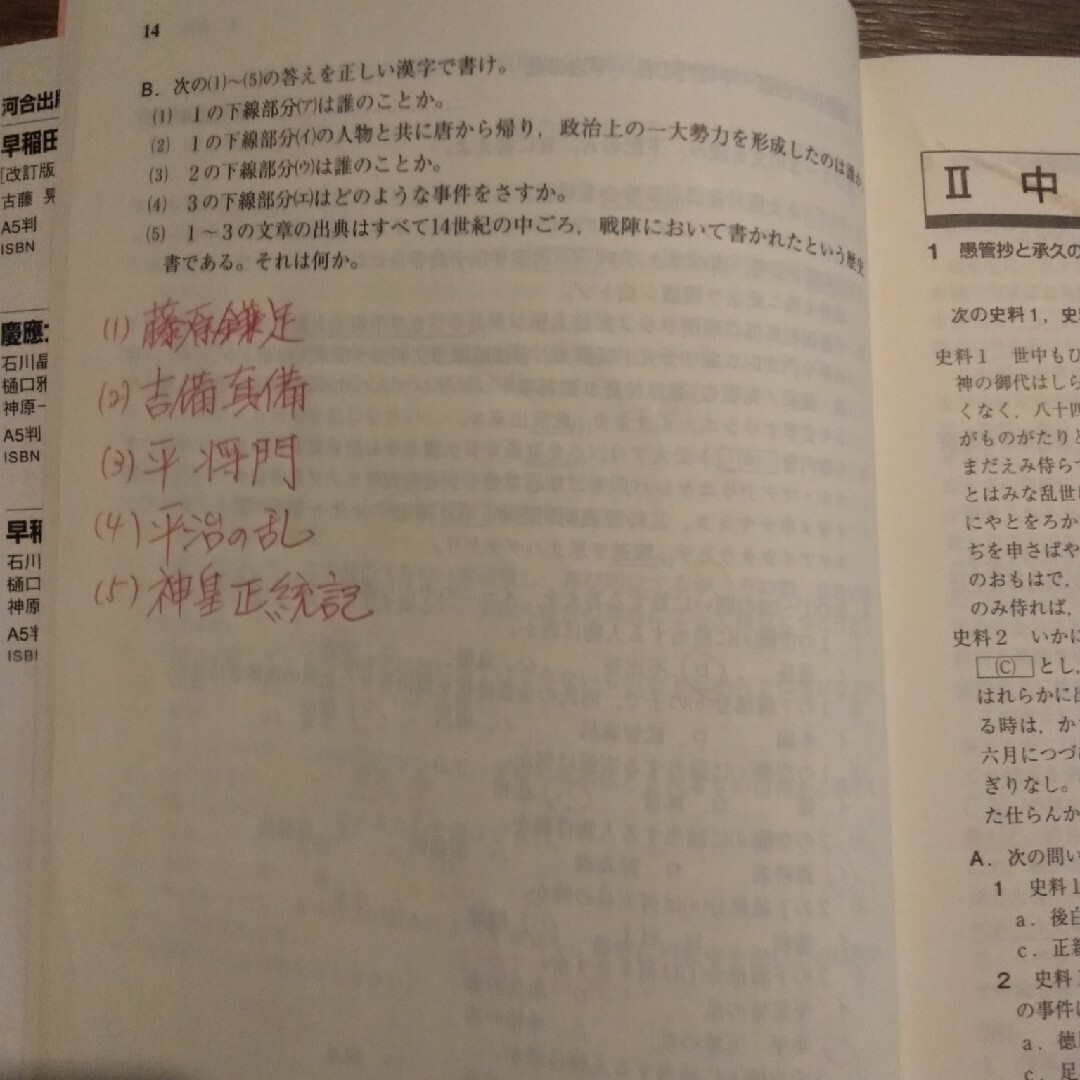 14
B. 次の(1)~(5)の答えを正しい漢字で書け。
(1) 1の下線部分(ア)は誰のことか。
(2) 1の下線部分(イ)の人物と共に唐から帰り，政治上の一大勢力を形成したのは誰か
(3) 2の下線部分(ウ)は誰のことか。
(4) 3の下線部分(エ)はどのような事件をさすか。
(5) 1～3の文章の出典はすべて14世紀の中ごろ，戦陣において書かれたという歴史
書である。それは何か。
(1) 藤原鎌足
(2) 吉備真備
(3) 平将門
(4) 平治の乱
(5) 神皇正統記
河合出版
早稲田
[改訂版
古藤 晃
A5判
ISBN
慶應
石川晶
樋口雅
神原一
A5判
ISBN
早稲
石川
樋口
神原
A5判
ISBN
II 中
1 愚管抄と承久の
次の史料1，史
史料1 世中もひ
神の御代はしら
くなく，八十四
がものがたりと
まだえみ侍らで
とはみな乱世
にやとをろか
ぢを申さばや
のおもはで，
のみ侍れば，
史料2 いかに
(C) とし，
はれらかに
る時は，か
六月につづ
ぎりなし。
た仕らんか
A. 次の問い
1 史料1
a. 後白
c. 正
2 史料
の事件
a. 徳
c. 足